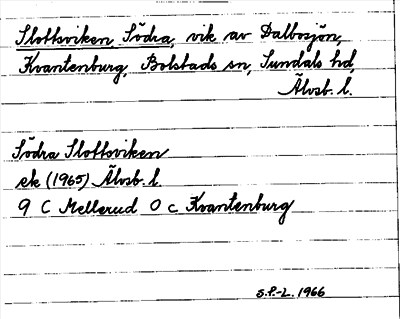 Slottsviken, Södra, vik av Dalbosjön,
Kvantenburg, Bolstads sn, Sundals hd,
Älvsb. l.
Södra Slottsviken
ek (1965) Älvsb. l.
9 C Mellerud 0 c Kvantenburg
S.P.-L. 1966